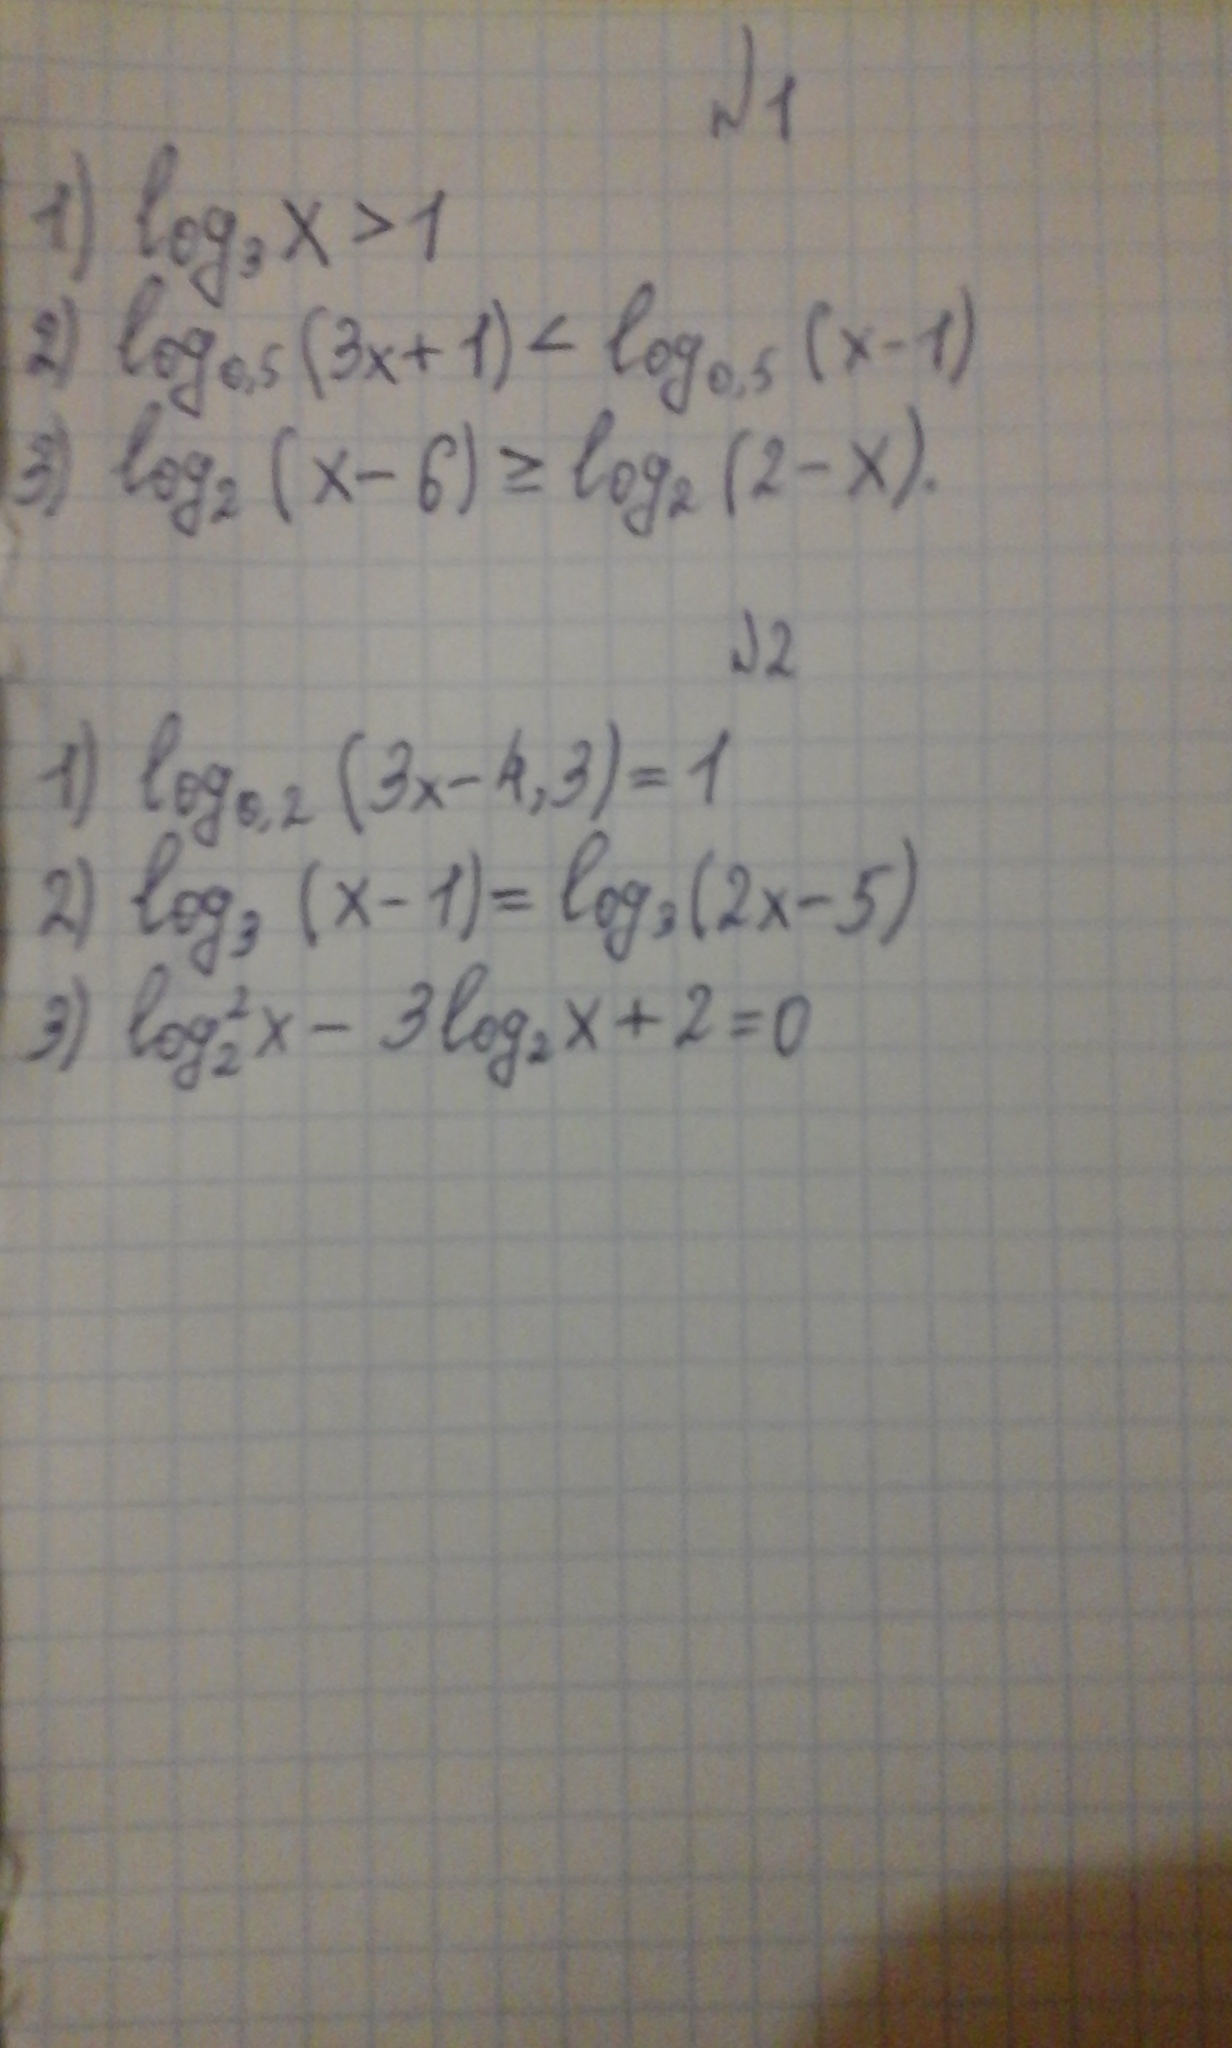 №1
1) log₃ x > 1
2) log₀,₅ (3x+1) < log₀,₅ (x-1)
3) log₂ (x-6) ≥ log₂ (2-x).
№2
1) log₀,₂ (3x-4,3) = 1
2) log₃ (x-1) = log₃ (2x-5)
3) log₂² x - 3log₂ x + 2 = 0